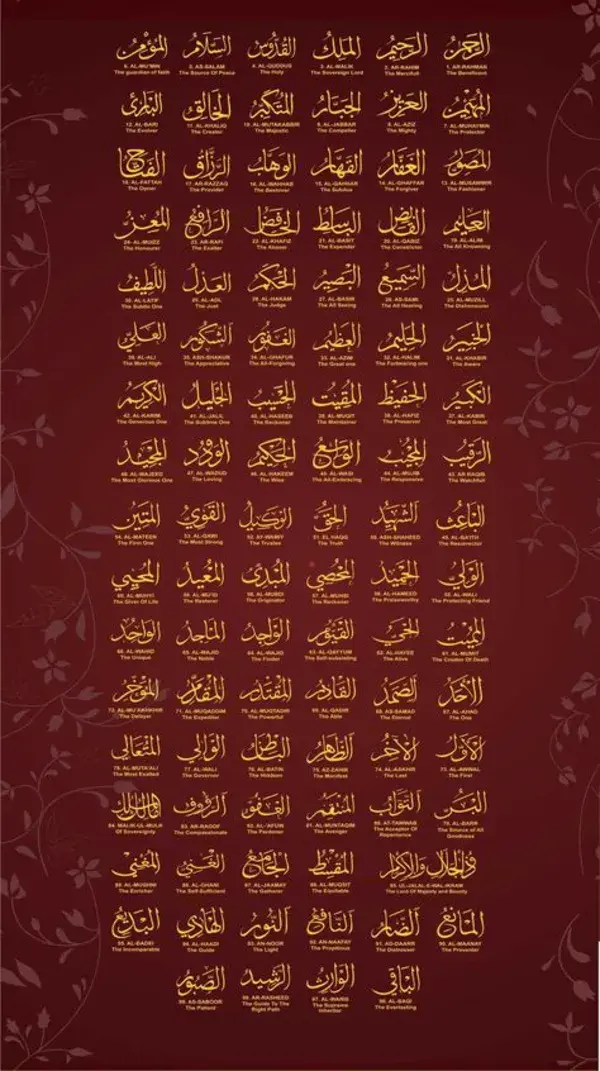 الرحمن الرحيم الملك القدوس السلام المؤمن
1. AR-RAHMAN 2. AR-RAHIM 3. AL-MALIK 4. AL-QUDOUS 5. AS-SALAM 6. AL-MU'MIN
The Beneficent The Merciful The Sovereign Lord The Holy The Source Of Peace The guardian of faith
المهيمن العزيز الجبار المتكبر الخالق البارئ
7. AL-MUHAYMIN 8. AL-AZIZ 9. AL-JABBAR 10. AL-MUTAKABBIR 11. AL-KHALIQ 12. AL-BARI
The Protector The Mighty The Compeller The Majestic The Creator The Evolver
المصور الغفار القهار الوهاب الرزاق الفتاح
13. AL-MUSAWWIR 14. AL-GHAFFAR 15. AL-QAHHAR 16. AL-WAHHAB 17. AR-RAZZAQ 18. AL-FATTAH
The Fashioner The Forgiver The Subdue The Bestower The Provider The Opner
العليم القابض الباسط الخافض الرافع المعز
19. AL-ALIM 20. AL-QABIZ 21. AL-BASIT 22. AL-KHAFIZ 23. AR-RAFI 24. AL-MUIZZ
The All Knowing The Constrictor The Expender The Abaser The Exalter The Honourer
المذل السميع البصير الحكم العدل اللطيف
25. AL-MUZILL 26. AS-SAMI 27. AL-BASIR 28. AL-HAKAM 29. AL-ADL 30. AL-LATIF
The Dishonourer The All Hearing The All Seeing The Judge The Just The Subtle One
الخبير الحليم العظيم الغفور الشكور العلي
31. AL-KHABIR 32. AL-HALIM 33. AL-AZIM 34. AL-GHAFUR 35. ASH-SHAKUR 36. AL-ALI
The Aware The Forbearing one The Great one The All-Forgiving The Appreciative The Most High
الكبير الحفيظ المقيت الحسيب الجليل الكريم
37. AL-KABIR 38. AL-HAFIZ 39. AL-MUQIT 40. AL-HASEEB 41. AL-JALIL 42. AL-KARIM
The Most Great The Preserver The Maintainer The Reckoner The Sublime One The Generous One
الرقيب المجيب الواسع الحكيم الودود المجيد
43. AR RAQIB 44. AL-MUJIB 45. AL-WASI 46. AL-HAKEEM 47. AL-WADUD 48. AL-MAJEED
The Watchfull The Responsive The All-Embracing The Wise The Loving The Most Glorious One
الباعث الشهيد الحق الوكيل القوي المتين
50. ASH-SHAHEED 51. EL HAQQ 53. AL-QAWI 54. AL-MATEEN
The Resurrector The Witness The Truth The Trustee The Most Strong The Firm One
الولي الحميد المحصي المبدئ المعيد المحيي
55. AL-WALI 56. AL-HAMEED 57. AL-MUHSI 58. AL-MUBDI 59. AL-MU'ID 60. AL-MUHYI
The Protecting Friend The Praiseworthy The Reckoner The Originator The Restorer The Giver Of Life
المميت الحي القيوم الواجد الماجد الواحد
61. AL-MUMIT 62. AL-HAYEE 63. AL-QAYYUM 64. AL-WAJID 65. AL-MAJID 66. AL-WAHID
The Creator Of Death The Alive The Self-subsisting The Finder The Noble The Unique
الأحد الصمد القادر المقتدر المقدم المؤخر
67. AL-AHAD 68. AS-SAMAD 69. AL-QADIR 70. AL-MUQTADIR 71. AL-MUQADDIM 72. AL-MU'AKHKHIR
The One The Eternal The Able The Powerful The Expediter The Delayer
الأول الآخر الظاهر الباطن الوالي المتعالي
73. AL-AWWAL 74. AL-AAKHIR 75. AZ-ZAHIR 76. AL-BATIN 77. AL-WALI 78. AL-MUTA'ALI
The First The Last The Manifest The Hiddem The Governor The Most Exalted
البر التواب المنتقم العفو الرؤوف مالك الملك
79. AL-BARR 80. AT-TAWWAB 81. AL-MUNTAQIM 82. AL-'AFUW 83. AR-RAOOF 84. MALIK-UL-MULK
The Source of All Goodness The Acceptor Of Repentance The Avenger The Pardoner The Compassionate Of Sovereignty
ذو الجلال والإكرام المقسط الجامع الغني المغني
85. UL-JALAL-E-WAL-IKRAM 86. AL-MUQSIT 87. AL-JAAMAY 88. AL-GHANI 89. AL-MUGHNI
The Lord Of Majesty and Bounty The Equitable The Gatherer The Self-Sufficient The Enricher
المانع الضار النافع النور الهادي البديع
90. AL-MAANAY 91. AD-DAARR 92. AN-NAAFAY 93. AN-NOOR 94. AL-HAADI 95. AL-BADEI
The Preventer The Distresser The Propitious The Light The Guide The Incomparable
الباقي الوارث الرشيد الصبور
96. AL-BAQI 97. AL-WARIS 98. AR-RASHEED 99. AS-SABOOR
The Everlasting The Supreme Inheritor The Guide To The Right Path The Patient